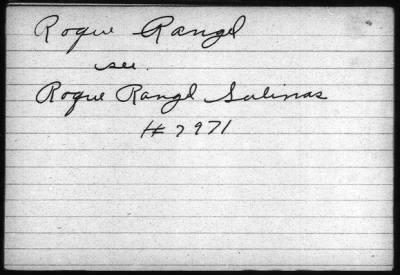 Roque Rangel
see
Roque Rangel Salinas
# 7971